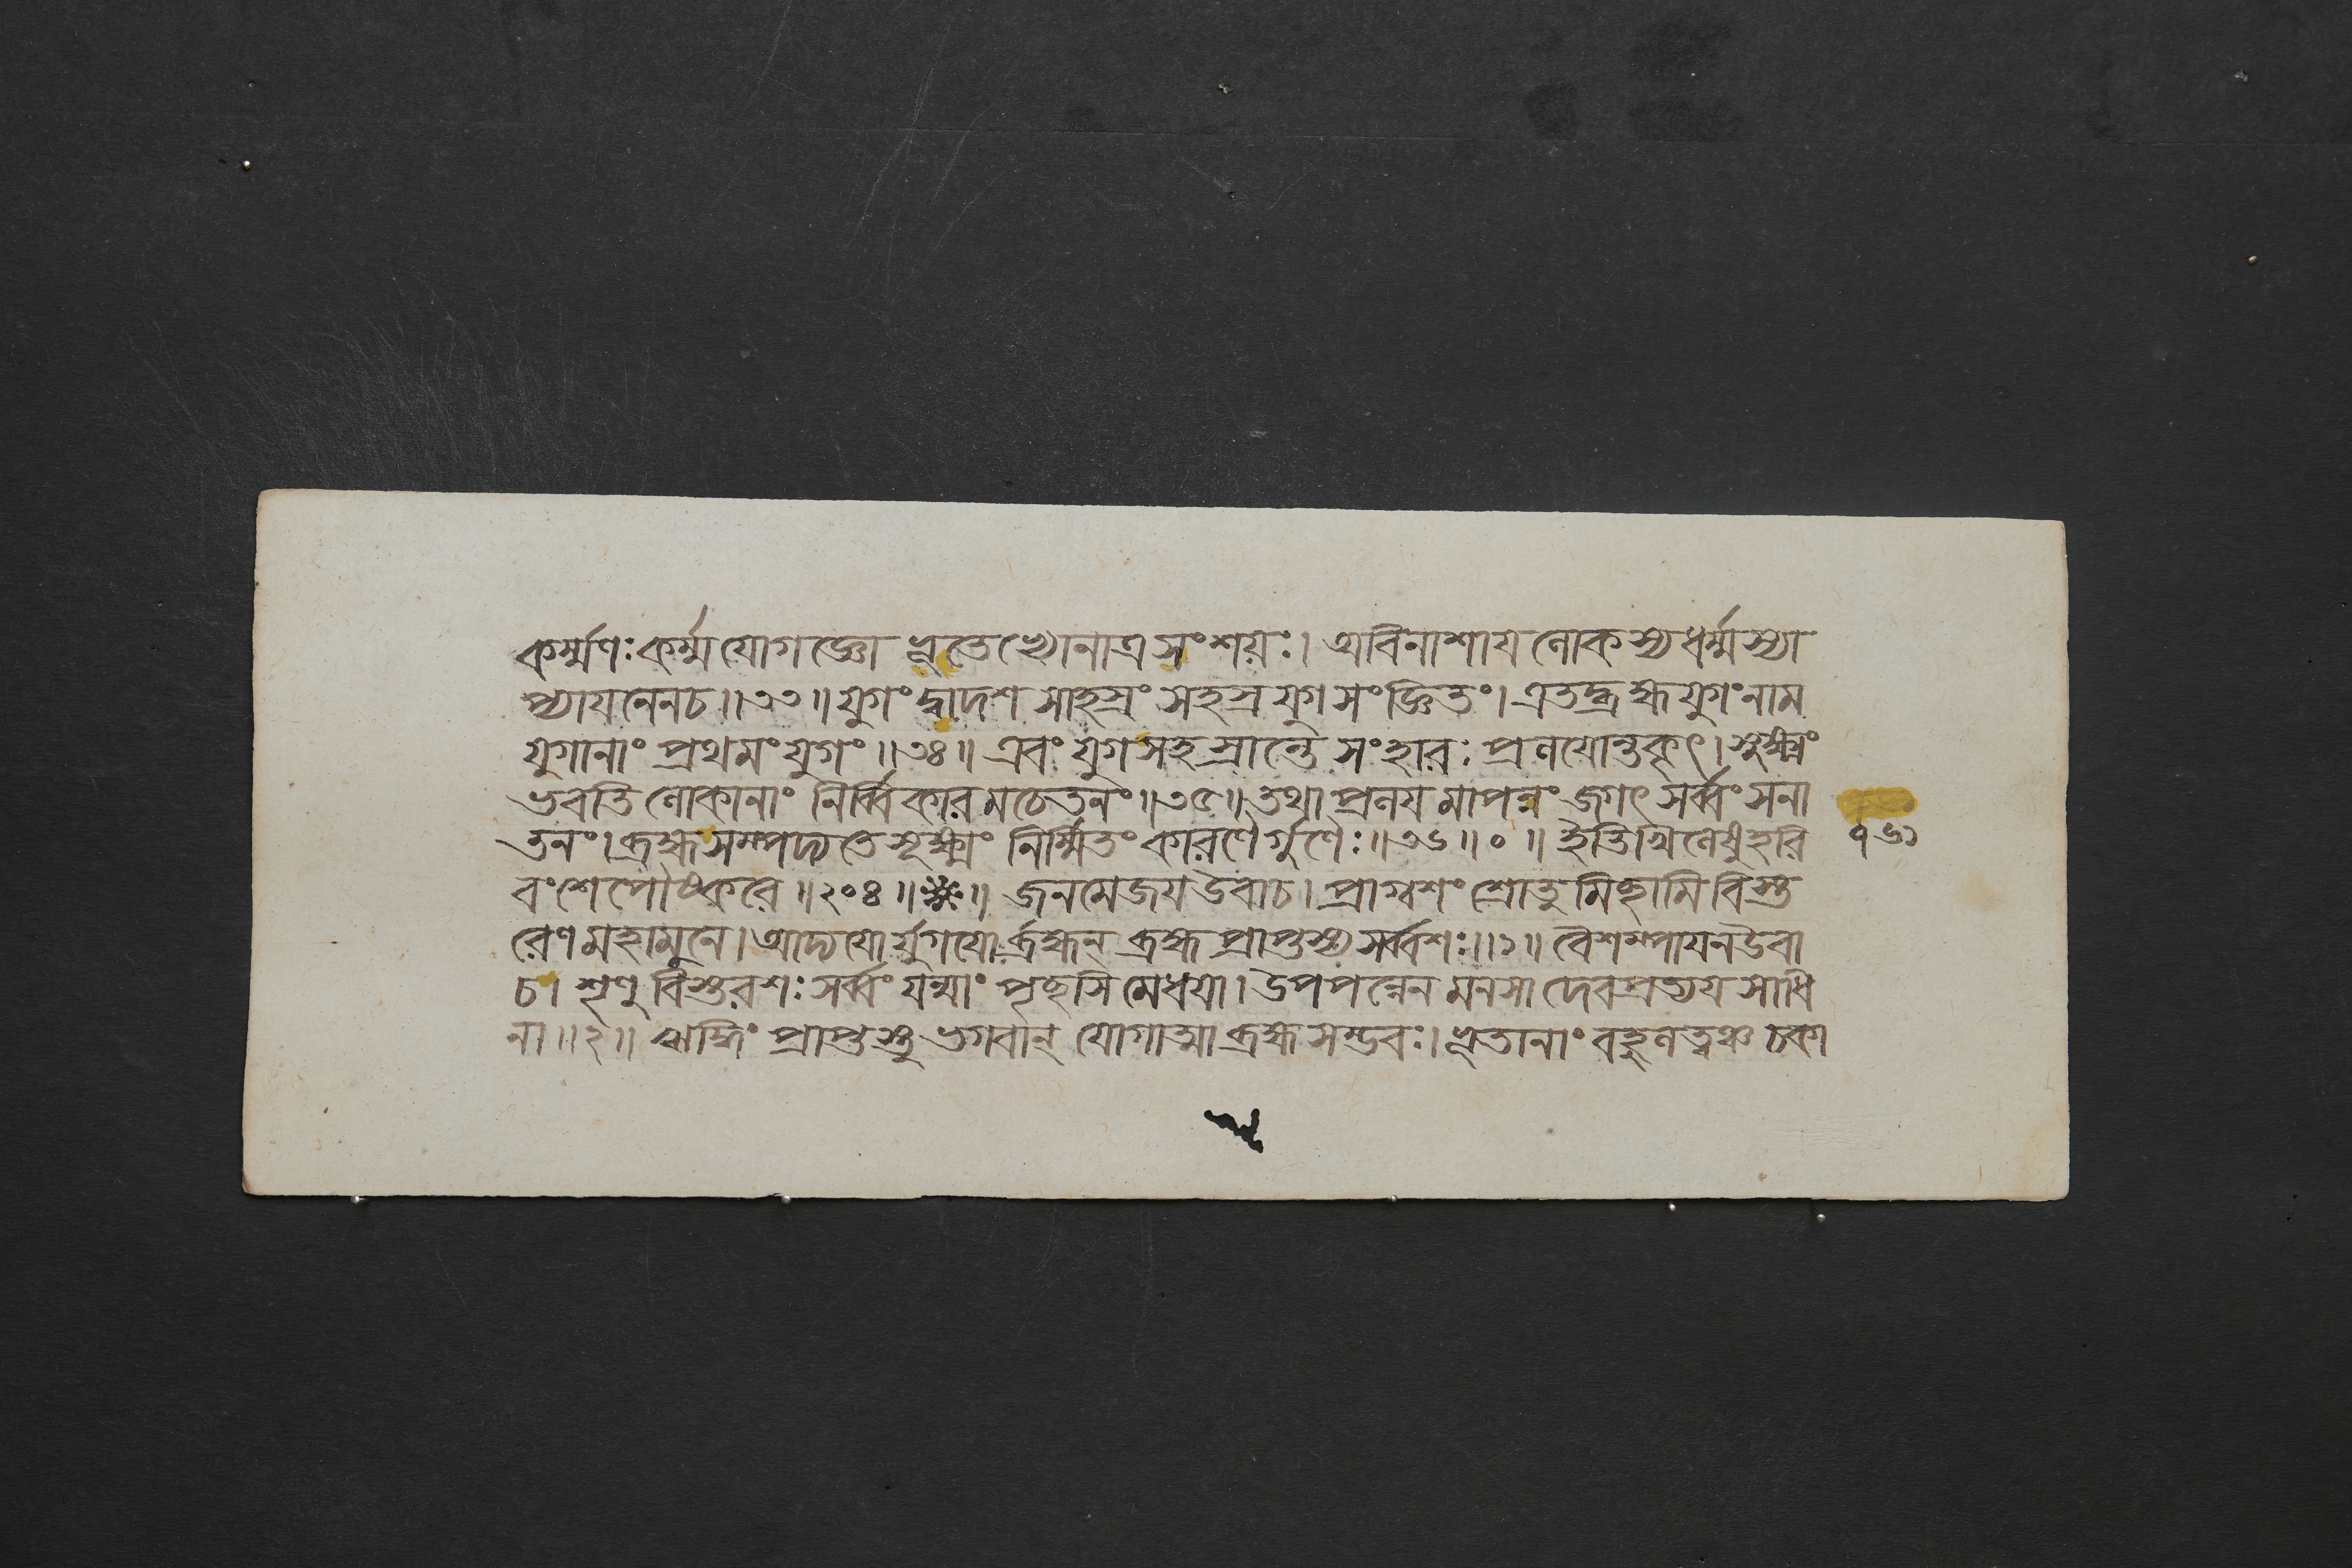 কর্ম্মণঃ কর্ম্মযোগজ্ঞো ভূতেভ্যোনাত্র সংশয়ঃ। অবিনাশায লোকস্য ধর্ম্মস্যা
প্যাযনেনচ॥৩৩॥ যুগং দ্বাদশসাহস্রং সহস্রযুগসংজ্ঞিতং। এতদ্ব্রহ্মযুগং নাম
যুগানাং প্রথমং যুগং॥৩৪॥ এবং যুগসহস্রান্তে সংহারঃ প্রলযোন্তকৃৎ। সুক্ষ্মং
ভবতি লোকানাং নির্ব্বিকারমচেতনং॥৩৫॥ তথা প্রলযমাপন্নং জগৎ সর্ব্বং সনা
তনং। ব্রহ্মসম্পদ্যতে সূক্ষ্মং নির্ম্মিতং কারণৈর্গুণৈঃ॥৩৬॥০॥ ইতি খিলেষু হরি
বংশে পৌষ্করে॥২০৪॥ জনমেজয উবাচ। প্রাগ্বশং শ্রোতুমিচ্ছামি বিস্ত
রেণ মহামুনে। আদ্যযোর্যুগযোর্ব্রহ্মন্ ব্রহ্মপ্রাপ্তস্য সর্ব্বশঃ॥১॥ বৈশম্পাযন উবা
চ। শৃণু বিস্তরশঃ সর্ব্বং যন্মাং পৃচ্ছসি মেধযা। উপপন্নেন মনসা দেবপ্রত্যযসাধি
না॥২॥ ঋদ্ধিং প্রাপ্তস্তু ভগবান্ যোগাত্মা ব্রহ্মসম্ভবঃ। ভূতানাং বহুলত্বঞ্চ চকা
৭৬১